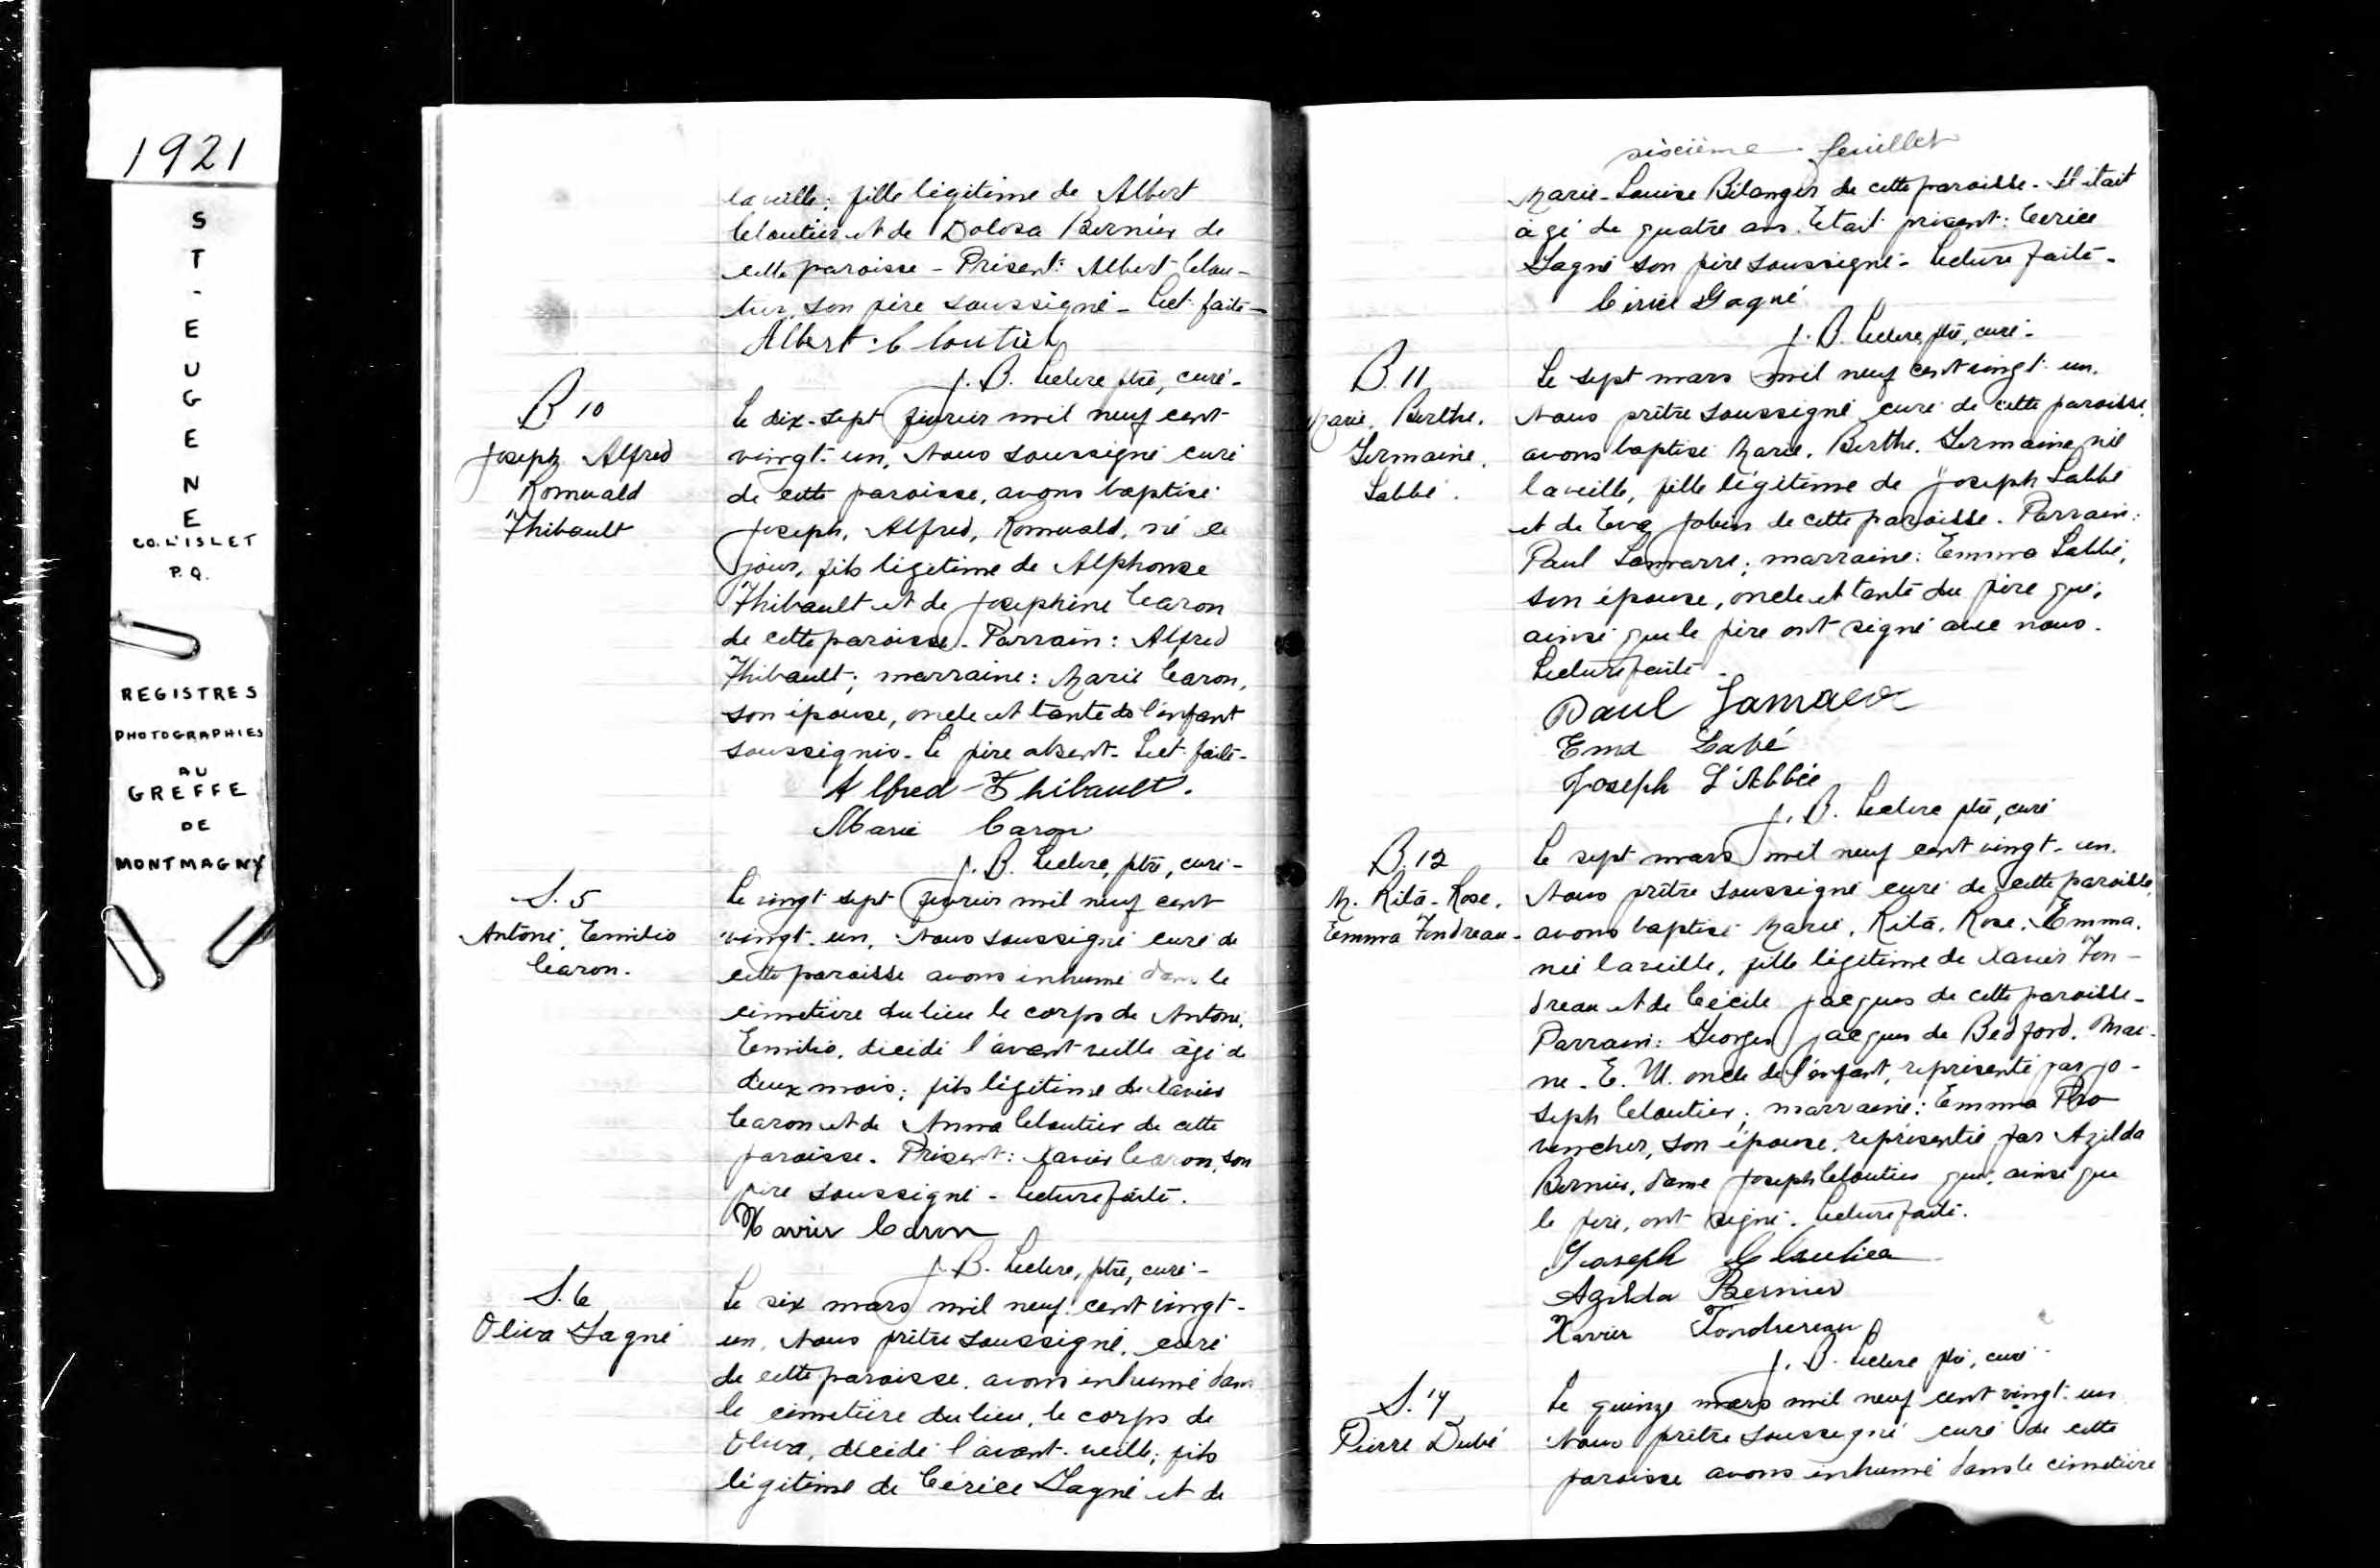 1921
ST-EUGENE
CO. L'ISLET
P.Q.
REGISTRES
PHOTOGRAPHIES
AU
GREFFE
DE
MONTMAGNY
la veille; fille légitime de Albert
Cloutier et de Dolosa Bernier de
cette paroisse - Présent: Albert Clou-
tier, son père soussigné - Lect. faite -
Albert Cloutier
J. B. Leclerc ptre, curé -
B 10
Joseph Alfred
Romuald
Thibault
Le dix-sept février mil neuf cent
vingt-un, Nous soussigné curé
de cette paroisse, avons baptisé
Joseph, Alfred, Romuald, né ce
jour, fils légitime de Alphonse
Thibault et de Josephine Caron
de cette paroisse. Parrain: Alfred
Thibault; marraine: Marie Caron,
son épouse, oncle et tante de l'enfant
soussignés. Le père absent. Lect. faite -
Alfred Thibault.
Marie Caron
J. B. Leclerc, ptre, curé -
S. 5
Antoni, Emilio
Caron.
Le vingt sept février mil neuf cent
vingt-un, Nous soussigné curé de
cette paroisse avons inhumé dans le
cimetière du lieu le corps de Antoni,
Emilio, décédé l'avant veille âgé de
deux mois; fils légitime de Xavier
Caron et de Anna Cloutier de cette
paroisse. Présent: Xavier Caron, son
père soussigné - Lecture faite.
Xavier Caron
J. B. Leclerc, ptre, curé -
S. 6
Oliva Gagné
Le six mars mil neuf cent vingt-
un, Nous prêtre soussigné, curé
de cette paroisse, avons inhumé dans
le cimetière du lieu, le corps de
Oliva, décédé l'avant-veille; fils
légitime de Cérice Gagné et de
sixième feuillet
Marie-Louise Bélanger de cette paroisse. Il était
âgé de quatre ans. Etait présent: Cérice
Gagné son père soussigné - Lecture faite -
Cirice Gagné
J. B. Leclerc, ptre, curé -
B. 11
Marie. Berthe.
Germaine.
Labbé.
Le sept mars mil neuf cent vingt-un.
Nous prêtre soussigné curé de cette paroisse,
avons baptisé Marie. Berthe. Germaine, née
la veille, fille légitime de Joseph Labbé
et de Eva Jobin de cette paroisse. Parrain:
Paul Lamarre; marraine: Emma Labbé,
son épouse, oncle et tante du père qui,
ainsi que le père ont signé avec nous.
Lecture faite -
Paul Lamare
Ema Labé
Joseph L'Abbée
J. B. Leclerc ptre, curé
B. 12
M. Rita-Rose.
Emma Fondreau -
Le sept mars mil neuf cent vingt-un.
Nous prêtre soussigné curé de cette paroisse,
avons baptisé Marie, Rita, Rose, Emma.
née la veille, fille légitime de Xavier Fon-
dreau et de Cécile Jacques de cette paroisse -
Parrain: Georges Jacques de Bedford. Mai-
ne. E. U. oncle de l'enfant, représenté par Jo-
seph Cloutier; marraine: Emma Pro
vencher, son épouse, représentée par Azilda
Bernier, dame Joseph Cloutier qui, ainsi que
le père, ont signé. Lecture faite.
Joseph Cloutier
Azilda Bernier
Xavier Fondrereau
J. B. Leclerc ptre, curé
S. 7
Pierre Dubé
Le quinze mars mil neuf cent vingt-un
Nous prêtre soussigné curé de cette
paroisse avons inhumé dans le cimetière